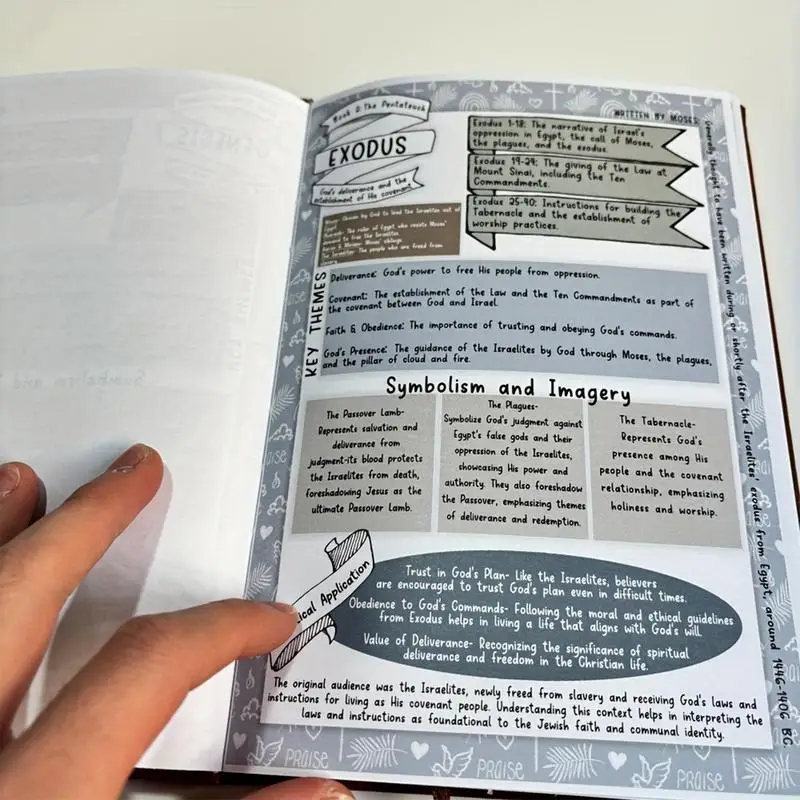 Book 2: The Pentateuch
EXODUS
God's deliverance and the
establishment of His covenant
WRITTEN BY MOSES:
Generally thought to have been written during or shortly after the Israelites' exodus from Egypt, around 1446-1406 BC
Exodus 1-18: The narrative of Israel's
oppression in Egypt, the call of Moses,
the plagues, and the exodus.
Exodus 19-24: The giving of the Law at
Mount Sinai, including the Ten
Commandments.
Exodus 25-40: Instructions for building the
Tabernacle and the establishment of
worship practices.
Moses: Chosen by God to lead the Israelites out of
Egypt
Pharaoh: The ruler of Egypt who resists Moses'
demand to free the Israelites
Aaron & Miriam: Moses' siblings
The Israelites: The people who are freed from
slavery
KEY THEMES
Deliverance: God's power to free His people from oppression.
Covenant: The establishment of the Law and the Ten Commandments as part of
the covenant between God and Israel.
Faith & Obedience: The importance of trusting and obeying God's commands.
God's Presence: The guidance of the Israelites by God through Moses, the plagues,
and the pillar of cloud and fire.
Symbolism and Imagery
The Passover Lamb-
Represents salvation and
deliverance from
judgment-its blood protects
the Israelites from death,
foreshadowing Jesus as the
ultimate Passover Lamb.
The Plagues-
Symbolize God's judgment against
Egypt's false gods and their
oppression of the Israelites,
showcasing His power and
authority. They also foreshadow
the Passover, emphasizing themes
of deliverance and redemption.
The Tabernacle-
Represents God's
presence among His
people and the covenant
relationship, emphasizing
holiness and worship.
ical Application
Trust in God's Plan- Like the Israelites, believers
are encouraged to trust God's plan even in difficult times.
Obedience to God's Commands- Following the moral and ethical guidelines
from Exodus helps in living a life that aligns with God's will.
Value of Deliverance- Recognizing the significance of spiritual
deliverance and freedom in the Christian life.
The original audience was the Israelites, newly freed from slavery and receiving God's laws and
instructions for living as His covenant people. Understanding this context helps in interpreting the
laws and instructions as foundational to the Jewish faith and communal identity.
PRAISE
PRAISE
PRAISE